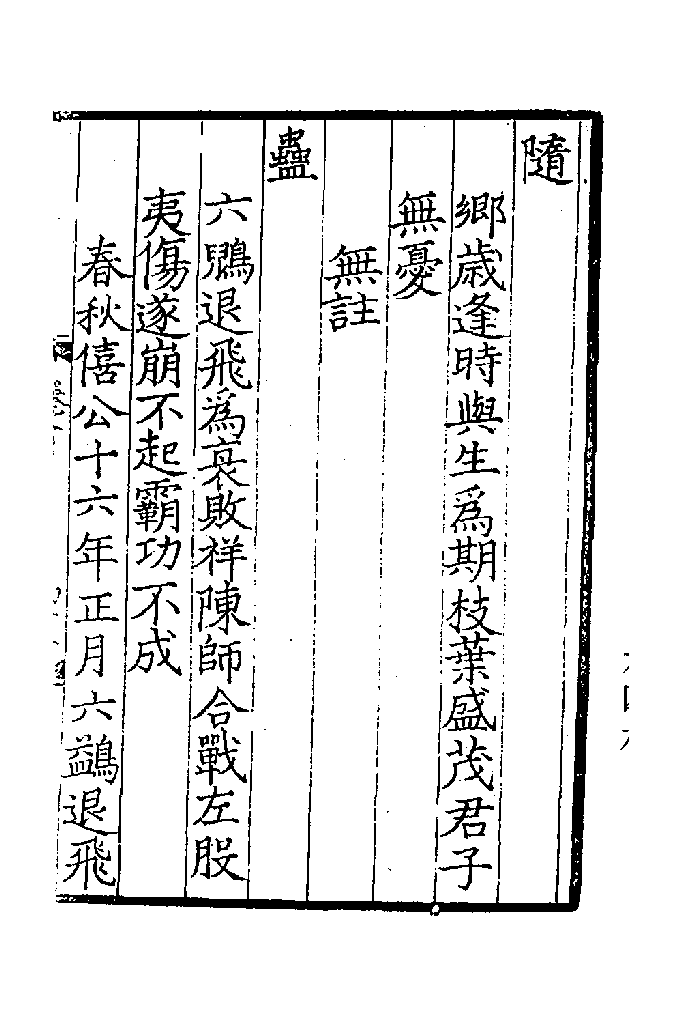 隨
鄉歳逢時與生爲期枝葉盛茂君子
無憂
無註
蠱
六鶂退飛爲衰敗祥陳師合戰左股
夷傷遂崩不起霸功不成
春秋僖公十六年正月六鷁退飛